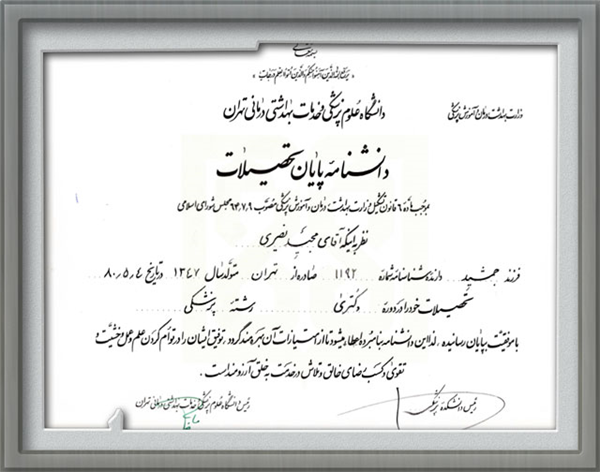 بسمه تعالی
« یرفع الله الذین آمنوا منکم والذین اوتوا العلم درجات »
وزارت بهداشت درمان و آموزش پزشکی
دانشگاه علوم پزشکی و خدمات بهداشتی درمانی تهران
دانشنامه پایان تحصیلات
بموجب ماده ۶ قانون تشکیل وزارت بهداشت درمان و آموزش پزشکی مصوب ۶۴,۷,۹ مجلس شورای اسلامی
نظر به اینکه آقای مجید نصیری
فرزند جمشید دارنده شناسنامه شماره ۱۱۹۲ صادره از تهران متولد سال ۱۳۴۷ در تاریخ ۸۰,۵,۴
تحصیلات خود را در دوره دکترای رشته پزشکی
با موفقیت بپایان رسانیده ، لذا این دانشنامه بنامبرده اعطا میشود تا از امتیازات آن بهره‌مند گردد . توفیق ایشان را در توأم کردن علم و عمل و خشیت و
تقوی و کسب رضای خالق و تلاش در خدمت به خلق آرزومند است .
رئیس دانشکده پزشکی
رئیس دانشگاه علوم پزشکی و خدمات بهداشتی درمانی تهران